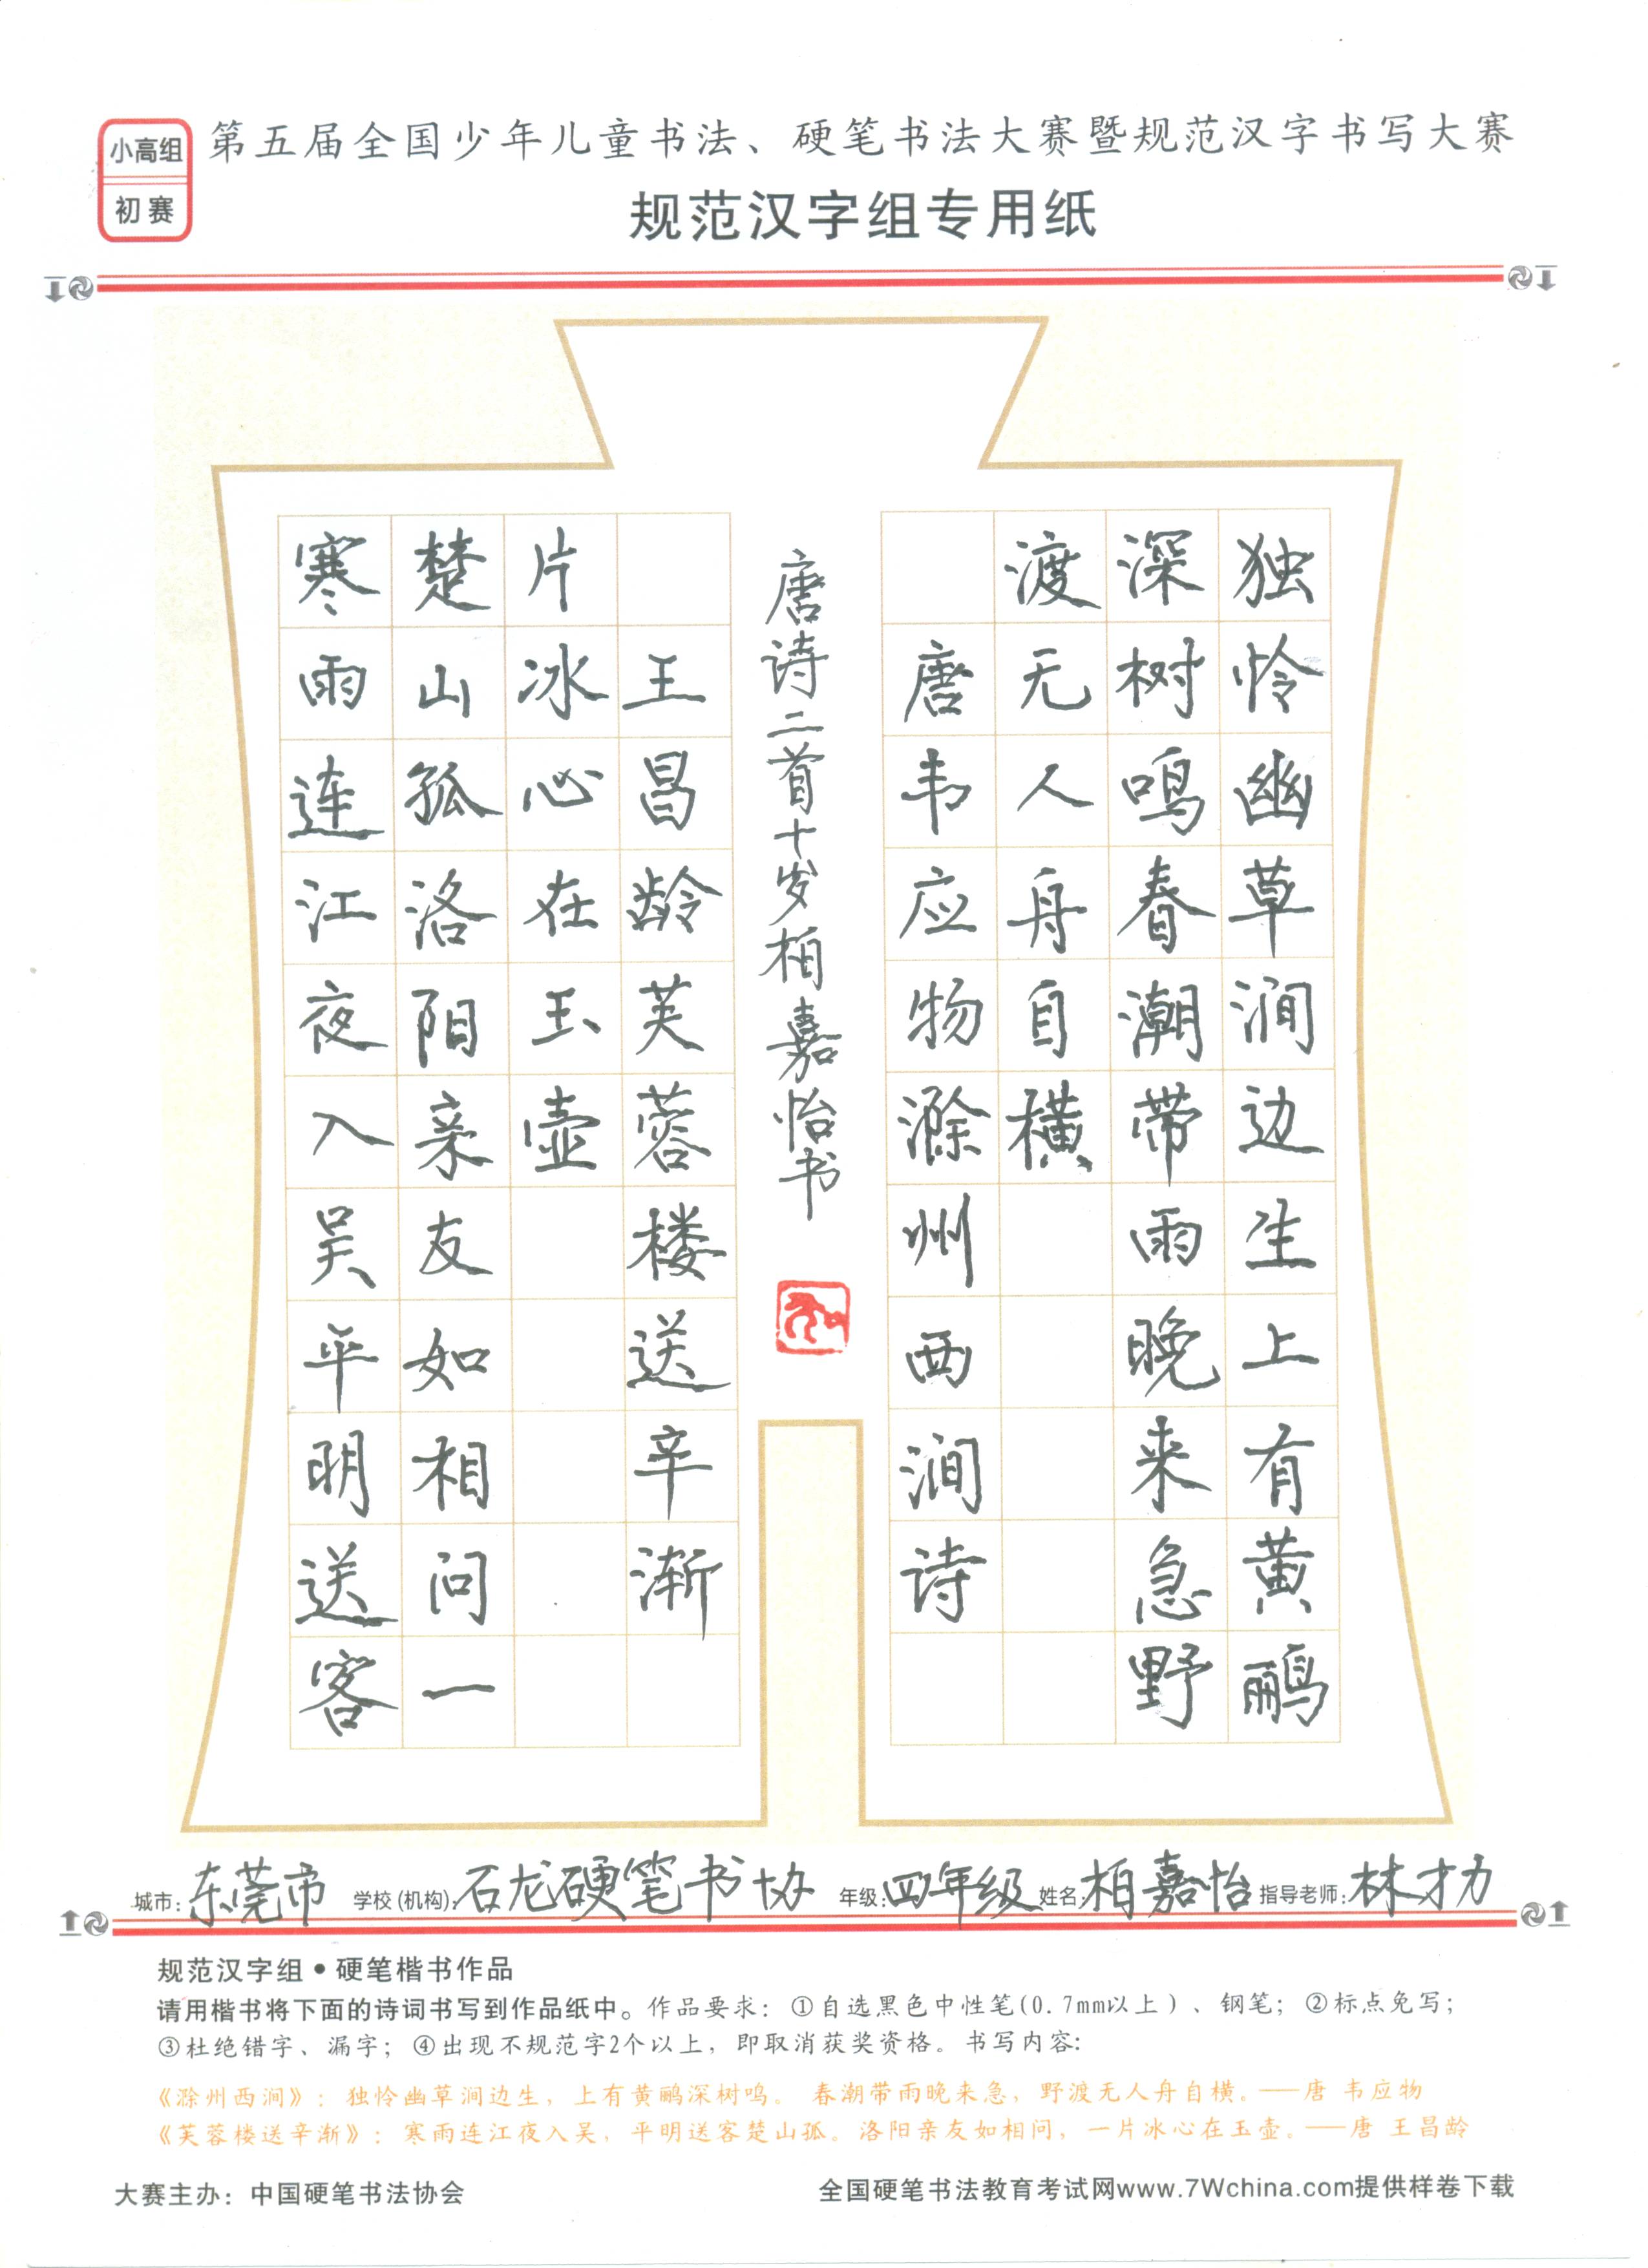 小高组
初赛
第五届全国少年儿童书法、硬笔书法大赛暨规范汉字书写大赛
规范汉字组专用纸
独怜幽草涧边生上有黄鹂
深树鸣春潮带雨晚来急野
渡无人舟自横
唐韦应物滁州西涧诗
唐诗二首十岁柏嘉怡书
王昌龄芙蓉楼送辛渐
片冰心在玉壶
楚山孤洛阳亲友如相问一
寒雨连江夜入吴平明送客
城市:东莞市 学校(机构):石龙硬笔书协 年级:四年级 姓名:柏嘉怡 指导老师:林才力
规范汉字组•硬笔楷书作品
请用楷书将下面的诗词书写到作品纸中。作品要求：①自选黑色中性笔(0.7mm以上)、钢笔；②标点免写；
③杜绝错字、漏字；④出现不规范字2个以上，即取消获奖资格。书写内容:
《滁州西涧》：独怜幽草涧边生，上有黄鹂深树鸣。 春潮带雨晚来急，野渡无人舟自横。——唐 韦应物
《芙蓉楼送辛渐》：寒雨连江夜入吴，平明送客楚山孤。洛阳亲友如相问，一片冰心在玉壶。——唐 王昌龄
大赛主办：中国硬笔书法协会
全国硬笔书法教育考试网www.7Wchina.com提供样卷下载